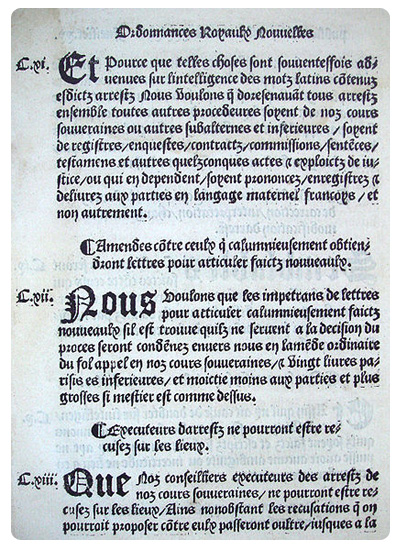 Ordonnances Royaulx Nouvelles
C.xi. Et Pource que telles choses sont souuenteffois ad-
uenues sur lintelligence des motz latins cõtenuz
esdictz arrestz Nous Voulons q̃ doresenauãt tous arrestz
ensemble toutes autres procedeures soyent de noz cours
souueraines ou autres subalternes et inferieures / soyent
de registres/enquestes/contractz/commissions/sentẽces/
testamens et autres quelzconques actes ⁊ exploictz de iu-
stice/ou qui en dependent/soyent prononcez/enregistrez ⁊
deliurez aux parties en langage maternel francoys / et
non autrement.
¶Amendes cõtre ceulx q̃ calumnieusement obtien-
dront lettres pour articuler faictz nouueaulx.
C.xii. Nous Voulons que les impetrans de lettres
pour articuler calumnieusement faictz
nouueaulx sil est trouue quilz ne seruent a la decision du
proces seront condẽnez enuers nous en lamẽde ordinaire
du fol appel en noz cours souueraines/⁊ vingt liures pa-
risis es inferieures/ et moictie moins aux parties et plus
grosses si mestier est comme dessus.
¶Executeurs darrestz ne pourront estre re-
cusez sur les lieux.
C.xiii. Que Noz conseilliers executeurs des arrestz de
noz cours souueraines/ ne pourront estre re-
cusez sur les lieux/Ains nonobstant les recusations q̃ on
pourroit proposer cõtre eulx passeront oultre/iusques a la